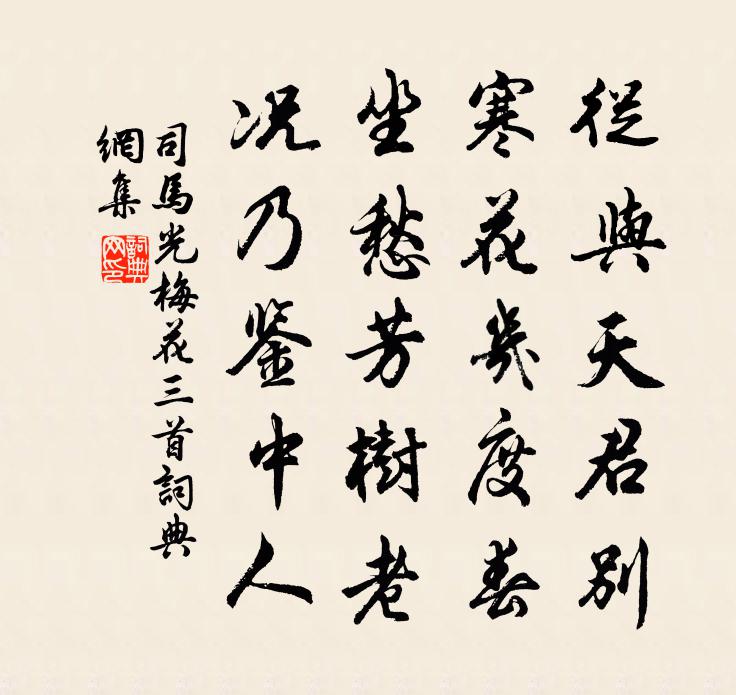 從與天君別
寒花幾度春
坐愁芳樹老
況乃鑒中人
司馬光梅花三首詞典
網集
詞典
网印